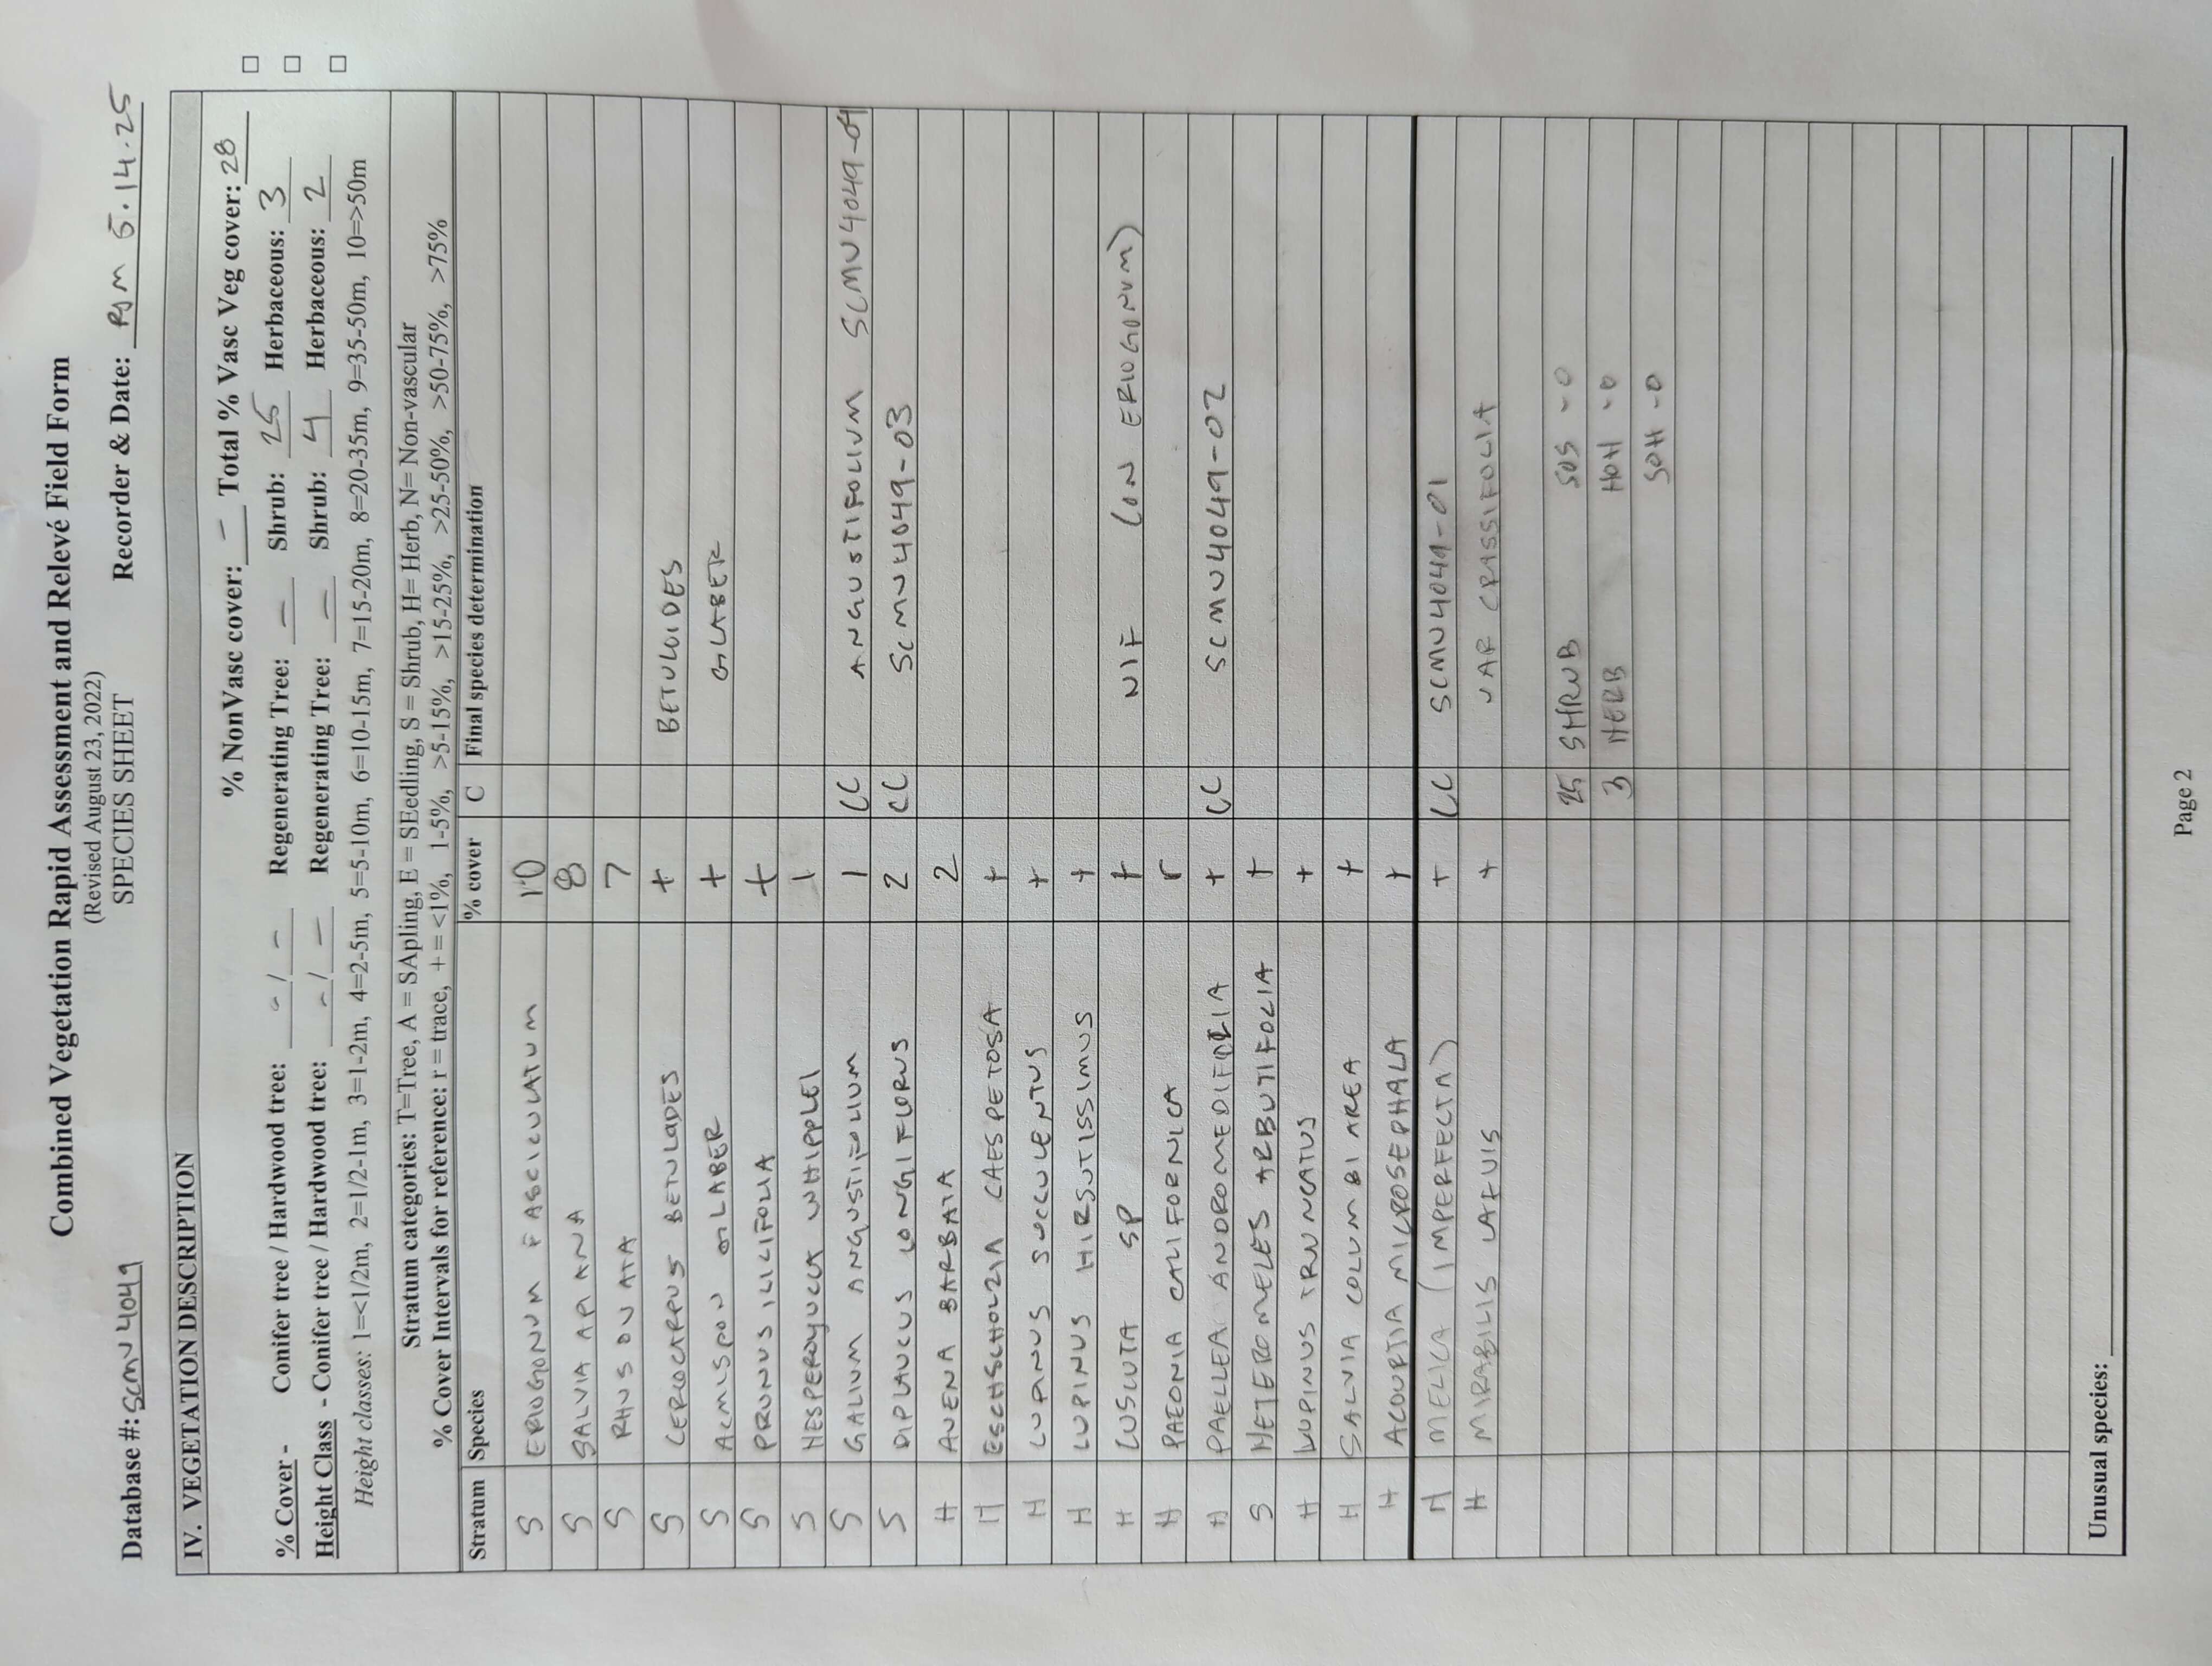 Combined Vegetation Rapid Assessment and Relevé Field Form
(Revised August 23, 2022)
Database #: SCMU4049 SPECIES SHEET Recorder & Date: RJM 5.14.25
IV. VEGETATION DESCRIPTION
% NonVasc cover: - Total % Vasc Veg cover: 28
% Cover - Conifer tree / Hardwood tree: - / - Regenerating Tree: - Shrub: 25 Herbaceous: 3
Height Class - Conifer tree / Hardwood tree: - / - Regenerating Tree: - Shrub: 4 Herbaceous: 2
Height classes: 1=<1/2m, 2=1/2-1m, 3=1-2m, 4=2-5m, 5=5-10m, 6=10-15m, 7=15-20m, 8=20-35m, 9=35-50m, 10=>50m
Stratum categories: T=Tree, A = SApling, E = SEedling, S = Shrub, H= Herb, N= Non-vascular
% Cover Intervals for reference: r = trace, + = <1%, 1-5%, >5-15%, >15-25%, >25-50%, >50-75%, >75%
Stratum Species % cover C Final species determination
S ERIOGONUM FASCICULATUM 10
S SALVIA APIANA 8
S RHUS OVATA 7
S CERCOCARPUS BETULADES + BETULOIDES
S ACMISPON GLABER + GLABER
S PRUNUS ILICIFOLIA +
S HESPEROYUCCA WHIPPLEI 1
S GALIUM ANGUSTIFOLIUM 1 CC ANGUSTIFOLIUM SCMU4049-04
S DIPLAUCUS LONGIFLORUS 2 CC SCMU4049-03
H AVENA BARBATA 2
H ESCHSCHOLZIA CAESPETOSA +
H LUPINUS SUCCULENTUS +
H LUPINUS HIRSUTISSIMUS +
H CUSCUTA SP + NIF (ON ERIOGONUM)
H PAEONIA CALIFORNICA r
H PAELLEA ANDROMEDIFOLIA + CC SCMU4049-02
S HETEROMELES ARBUTIFOLIA +
H LUPINUS TRUNCATUS +
H SALVIA COLUMBIAREA +
H ACOURTIA MICROSEPHALA +
H MELICA (IMPERFECTA) + CC SCMU4049-01
H MIRABILIS LAEVIS + VAR CRASSIFOLIA
25 SHRUB SOS -0
3 HERB HOH -0
SOH -0
Unusual species:
Page 2